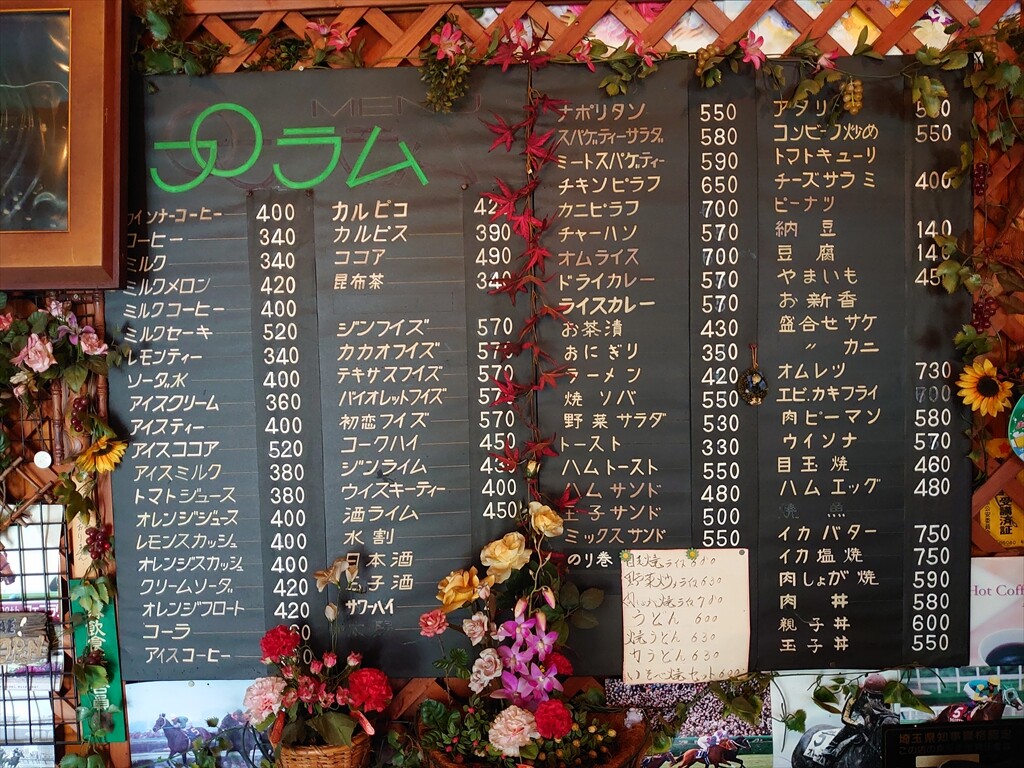 MENU
コラム
ウインナーコーヒー 400
コーヒー 340
ミルク 340
ミルクメロン 420
ミルクコーヒー 400
ミルクセーキ 520
レモンティー 340
ソーダ水 400
アイスクリーム 360
アイスティー 400
アイスココア 520
アイスミルク 380
トマトジュース 380
オレンジジュース 400
レモンスカッシュ 400
オレンジスカッシュ 400
クリームソーダ 420
オレンジフロート 420
コーラ
アイスコーヒー
カルピコ
カルピス 390
ココア 490
昆布茶 340
ジンフイズ 570
カカオフイズ 570
テキサスフイズ 570
バイオレットフイズ 570
初恋フイズ 570
コークハイ 450
ジンライム 430
ウイスキーティー 400
酒ライム 450
水割
日本酒
玉子酒
サワーハイ
ナポリタン 550
スパゲティーサラダ 580
ミートスパゲティー 590
チキンピラフ 650
カニピラフ 700
チャーハン 570
オムライス 700
ドライカレー 570
ライスカレー 570
お茶漬 430
おにぎり 350
ラーメン 420
焼ソバ 550
野菜サラダ 530
トースト 330
ハムトースト 550
ハムサンド 480
玉子サンド 500
ミックスサンド 550
のり巻
アタリ
コンビーフ炒め 550
トマトキューリ
チーズサラミ 400
ピーナツ
納豆 140
豆腐 140
やまいも 450
お新香
盛合せサケ
〃 カニ
オムレツ 730
エビ.カキフライ 700
肉ピーマン 580
ウインナ 570
目玉焼 460
ハムエッグ 480
焼魚
イカバター 750
イカ塩焼 750
肉しょが焼 590
肉丼 580
親子丼 600
玉子丼 550
目玉焼ライス 680
野菜炒めライス 630
肉しょが焼ライス 780
うどん 600
焼うどん 630
力うどん 630
Hot Coff
埼玉県知事